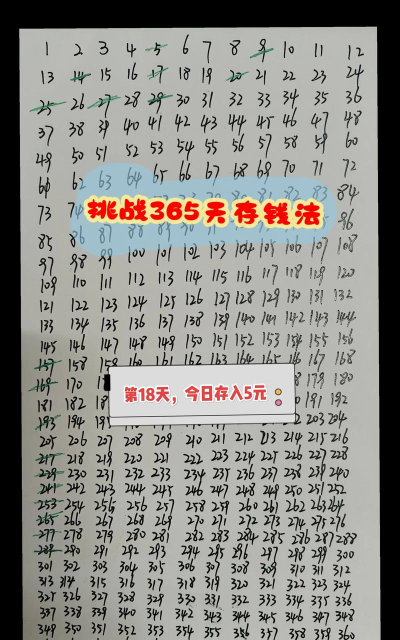 1 2 3 4 5 6 7 8 9 10 11 12
13 14 15 16 17 18 19 20 21 22 23 24
25 26 27 28 29 30 31 32 33 34 35 36
37 38 39 40 41 42 43 44 45 46 47 48
49 50 51 52 53 54 55 56 57 58 59 60
61 62 63 64 65 66 67 68 69 70 71 72
73 84
挑战365天存钱法
85 86 87 88 89 96
97 98 99 100 101 102 103 104 105 106 107 108
109 110 111 112 113 114 115 116 117 118 119 120
121 122 123 124 125 126 127 128 129 130 131 132
133 134 135 136 137 138 139 140 141 142 143 144
145 146 147 148 149 150 151 152 153 154 155 156
157 158 159 160 161 162 163 164 165 166 167 168
169 170 179 180
第18天，今日存入5元
181 182 191 192
193 194 195 202 203 204
205 206 207 208 209 210 211 212 213 214 215 216
217 218 219 220 221 222 223 224 225 226 227 228
229 230 231 232 233 234 235 236 237 238 239 240
241 242 243 244 245 246 247 248 249 250 251 252
253 254 255 256 257 258 259 260 261 262 263 264
265 266 267 268 269 270 271 272 273 274 275 276
277 278 279 280 281 282 283 284 285 286 287 288
289 290 291 292 293 294 295 296 297 298 299 300
301 302 303 304 305 306 307 308 309 310 311 312
313 314 315 316 317 318 319 320 321 322 323 324
325 326 327 328 329 330 331 332 333 334 335 336
337 338 339 340 341 342 343 344 345 346 347 348
349 350 351 352 353 354 355 356 357 358 359 360